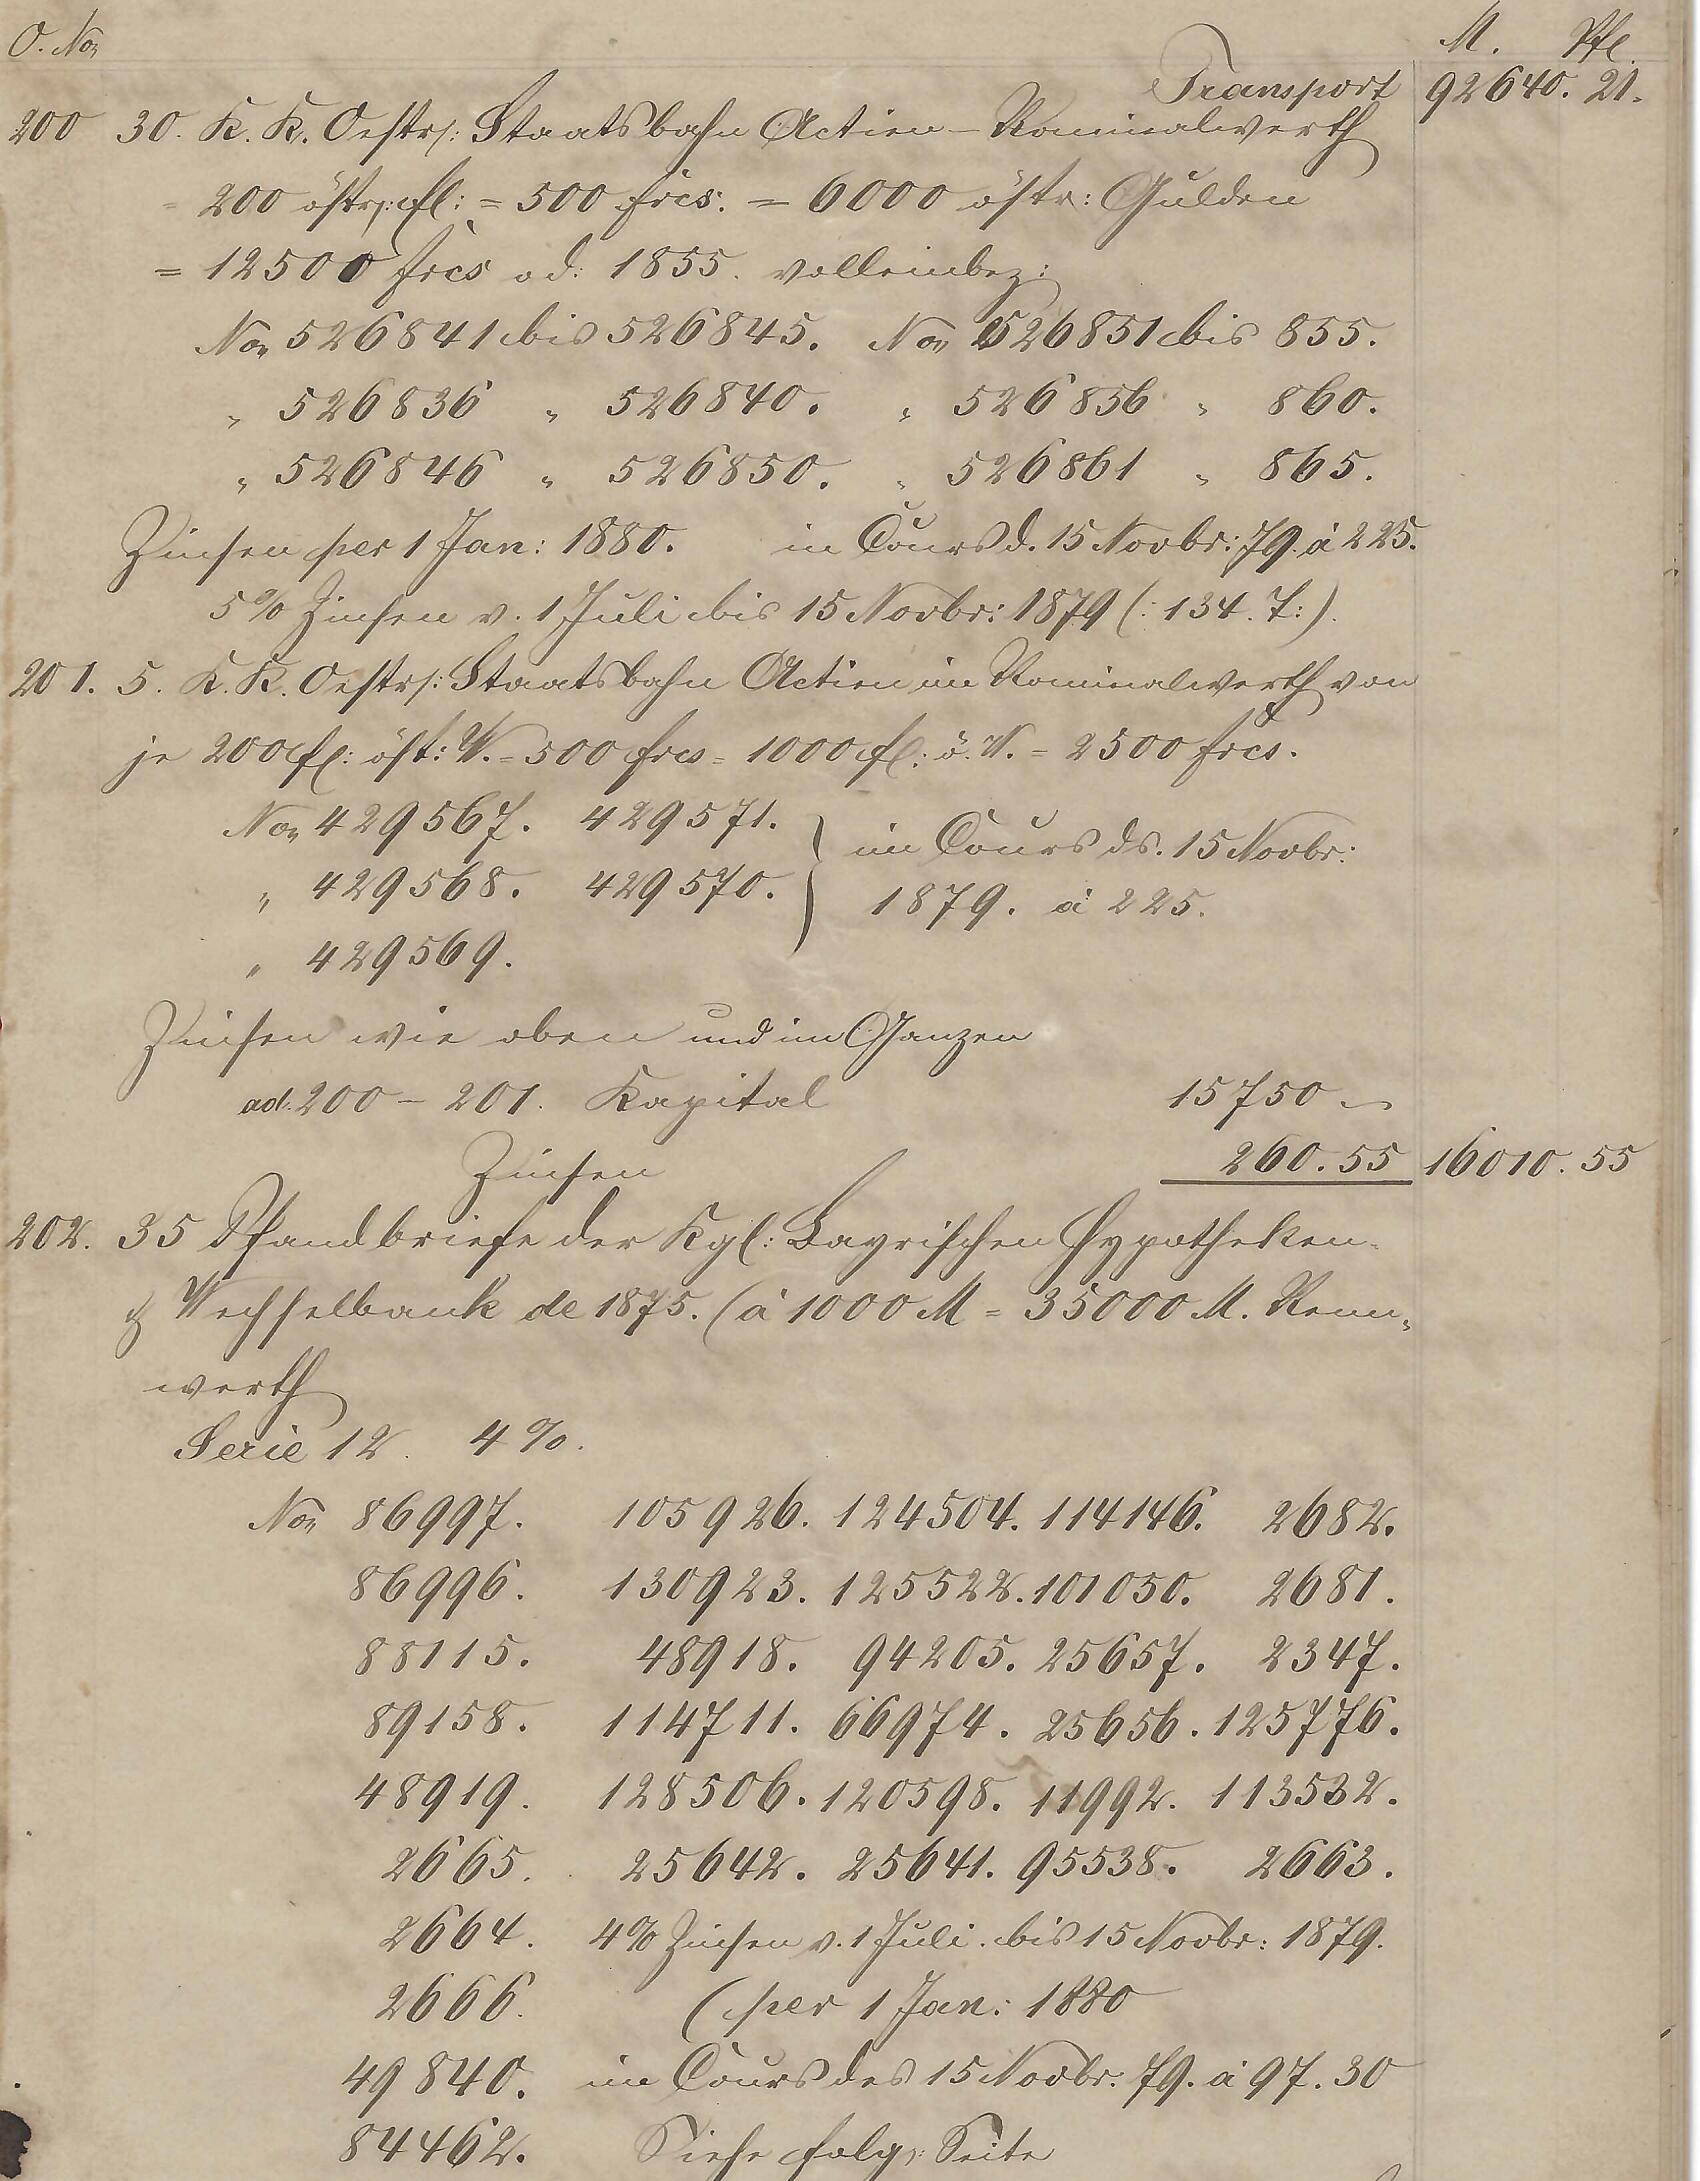 O. No. M. Pf.
Transport 92640. 21.
200 30. K. K. Oestr: Staatsbahn Actien - Nominalwerth
200 östr: fl: = 500 frcs. = 6000 östr: Gulden
= 12500 frcs od: 1855. volleinbez:
No. 526841 bis 526845. No. 526851 bis 855.
„ 526836 „ 526840. „ 526856 „ 860.
„ 526846 „ 526850. „ 526861 „ 865.
Zinsen per 1 Jan: 1880. im Cours d. 15 Novbr: 79. à 225.
5% Zinsen v. 1 Juli bis 15 Novbr: 1879 (: 134. T:).
201. 5. K. K. Oestr: Staatsbahn Actien im Nominalwerth von
je 200 fl: öst: W. = 500 frcs = 1000 fl: ö. W. = 2500 frcs.
No. 429567. 429571.
„ 429568. 429570.
„ 429569.
im Cours ds. 15 Novbr:
1879. à 225.
Zinsen wie oben und im Ganzen
ad. 200 - 201. Kapital 15750 -
Zinsen 260. 55 16010. 55
202. 35 Pfandbriefe der Kgl: Bayrischen Hypotheken-
& Wechselbank de 1875. (à 1000 M = 35000 M. Nenn-
werth
Serie 12. 4%.
No. 86997. 105926. 124504. 114146. 2682.
86996. 130923. 125522. 101050. 2681.
88115. 48918. 94205. 25657. 2347.
89158. 114711. 66974. 25656. 125776.
48919. 128506. 120598. 11992. 113532.
2665. 25642. 25641. 95538. 2663.
2664. 4% Zinsen v. 1 Juli. bis 15 Novbr: 1879.
2666. (per 1 Jan: 1880
49840. im Cours des 15 Novbr. 79. à 97. 30
84462. Siehe folg: Seite